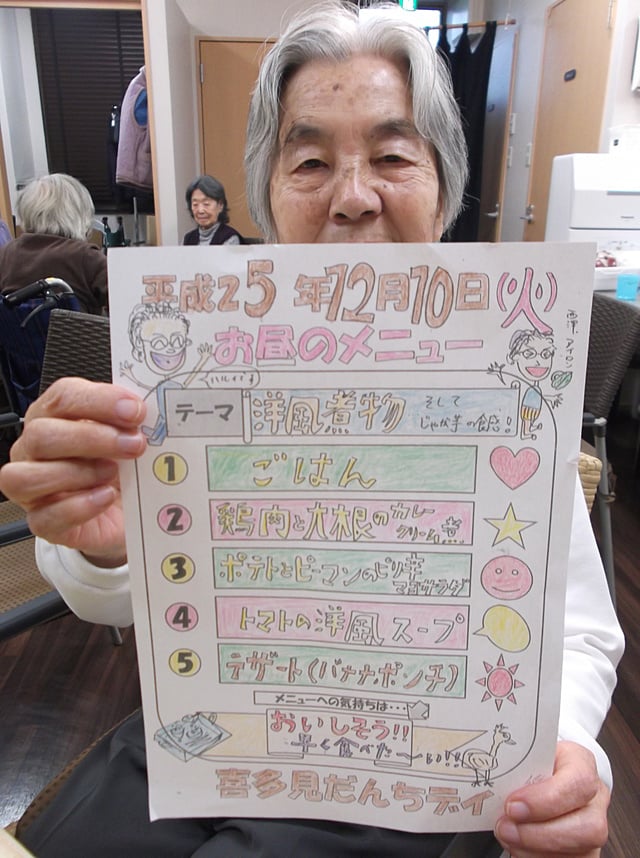 平成25年12月10日(火)
お昼のメニュー
ハルイチ
テーマ
洋風煮物
そして
じゃが芋の食感!!
1 ごはん
2 鶏肉と大根のカレー
クリーム煮
3 ポテトとピーマンのピリ辛
マヨサラダ
4 トマトの洋風スープ
5 デザート(バナナポンチ)
メニューへの気持ちは…
おいしそう!!
早く食べた〜い!!
喜多見だんちデイ